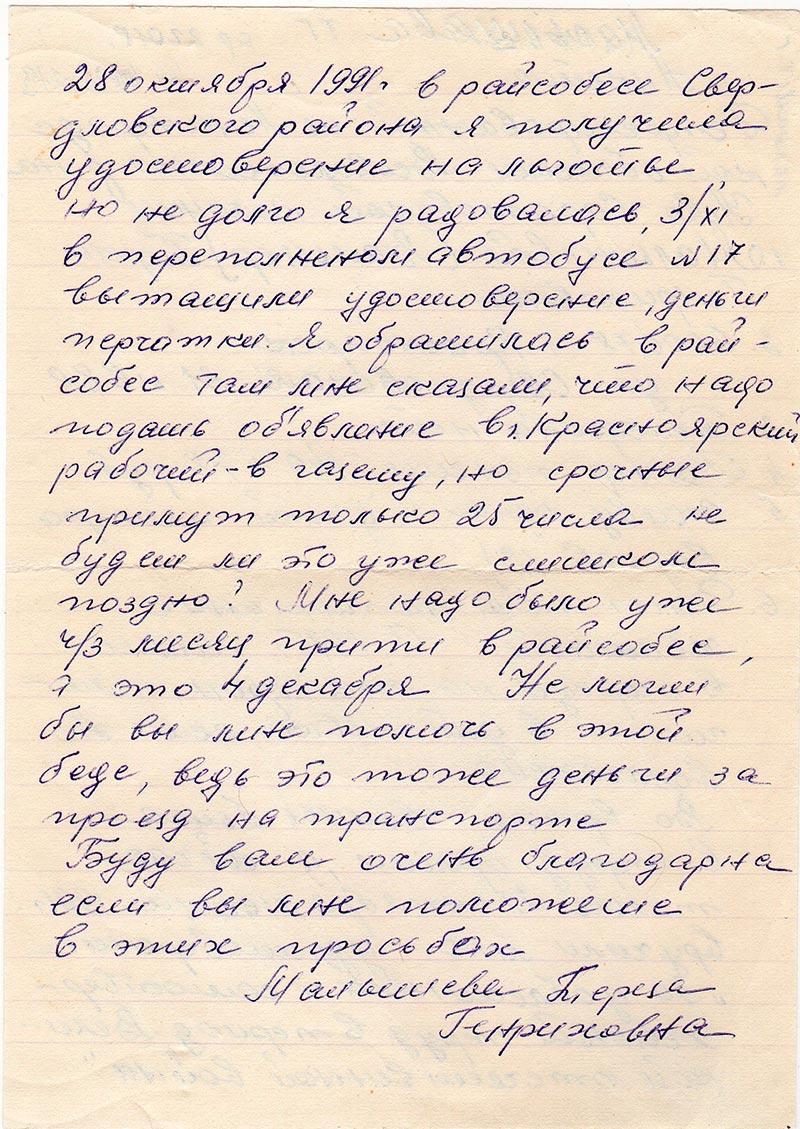 28 октября 1991г в райсобесе Свер-
дловского района я получила
удостоверение на льготы
но не долго я радовалась, 3/XI
в переполненом автобусе N 17
вытащили удостоверение, деньги
перчатки. Я обратилась в рай-
собес там мне сказали, что надо
подать об'явление в г. Красноярский
рабочий - в газету, но срочные
примут только 25 числа не
будет ли это уже слишком
поздно? Мне надо было уже
ч/з месяц прити в райсобес,
а это 4 декабря Не могли
бы вы мне помочь в этой
беде, ведь это тоже деньги за
проезд на транспорте
Буду вам очень благодарна
если вы мне поможете
в этих просьбах
Малышева Тереза
Генриховна